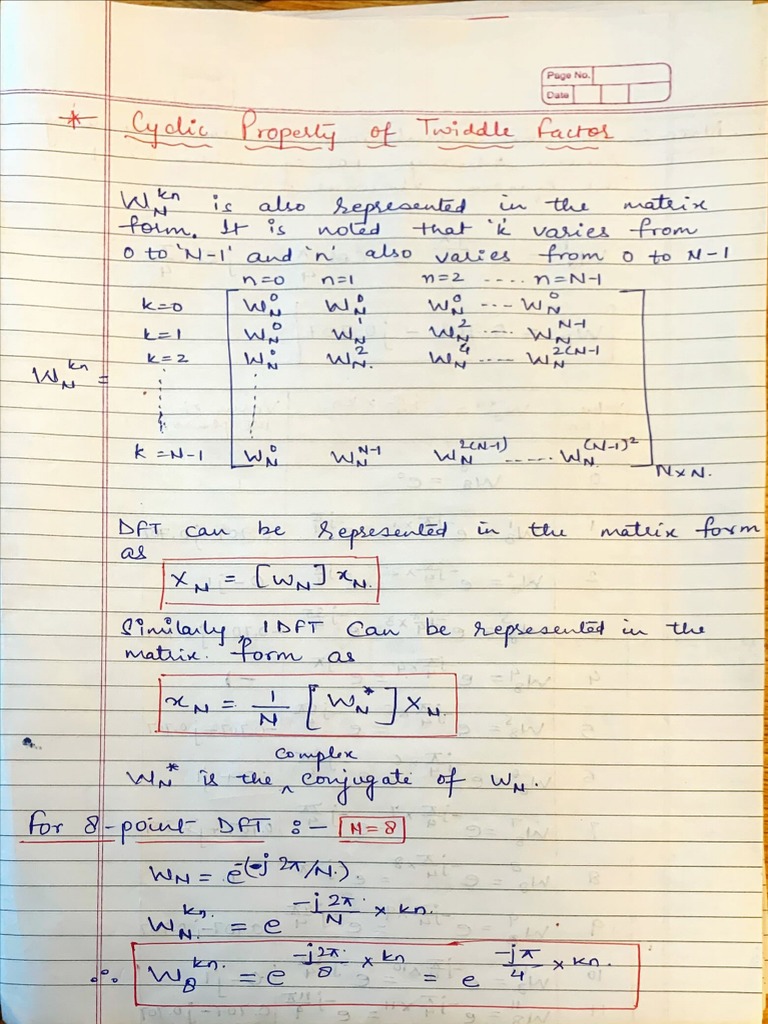 Page No.
Date
* Cyclic Property of Twiddle Factor
W_N^{kn} is also represented in the matrix
form. It is noted that 'k' varies from
0 to 'N-1' and 'n' also varies from 0 to N-1
n=0 n=1 n=2 .... n=N-1
k=0 W_N^0 W_N^0 W_N^0 --- W_N^0
k=1 W_N^0 W_N^1 W_N^2 ---- W_N^{N-1}
k=2 W_N^0 W_N^2 W_N^4 ---- W_N^{2(N-1}
W_N^{kn} =
k=N-1 W_N^0 W_N^{N-1} W_N^{2(N-1)} ----- W_N^{(N-1)^2}
N×N.
DFT can be represented in the matrix form
as
X_N = [W_N] x_N.
Similarly, IDFT can be represented in the
matrix. form as
x_N = 1/N [W_N^*] X_N.
W_N^* is the complex conjugate of W_N.
For 8-point DFT :- N=8
W_N = e^{-(-j 2π/N)}.
W_N^{kn.} = e^{-j2π/N × kn.}
∴ W_8^{kn.} = e^{-j2π/8 × kn} = e^{-jπ/4 × kn.}